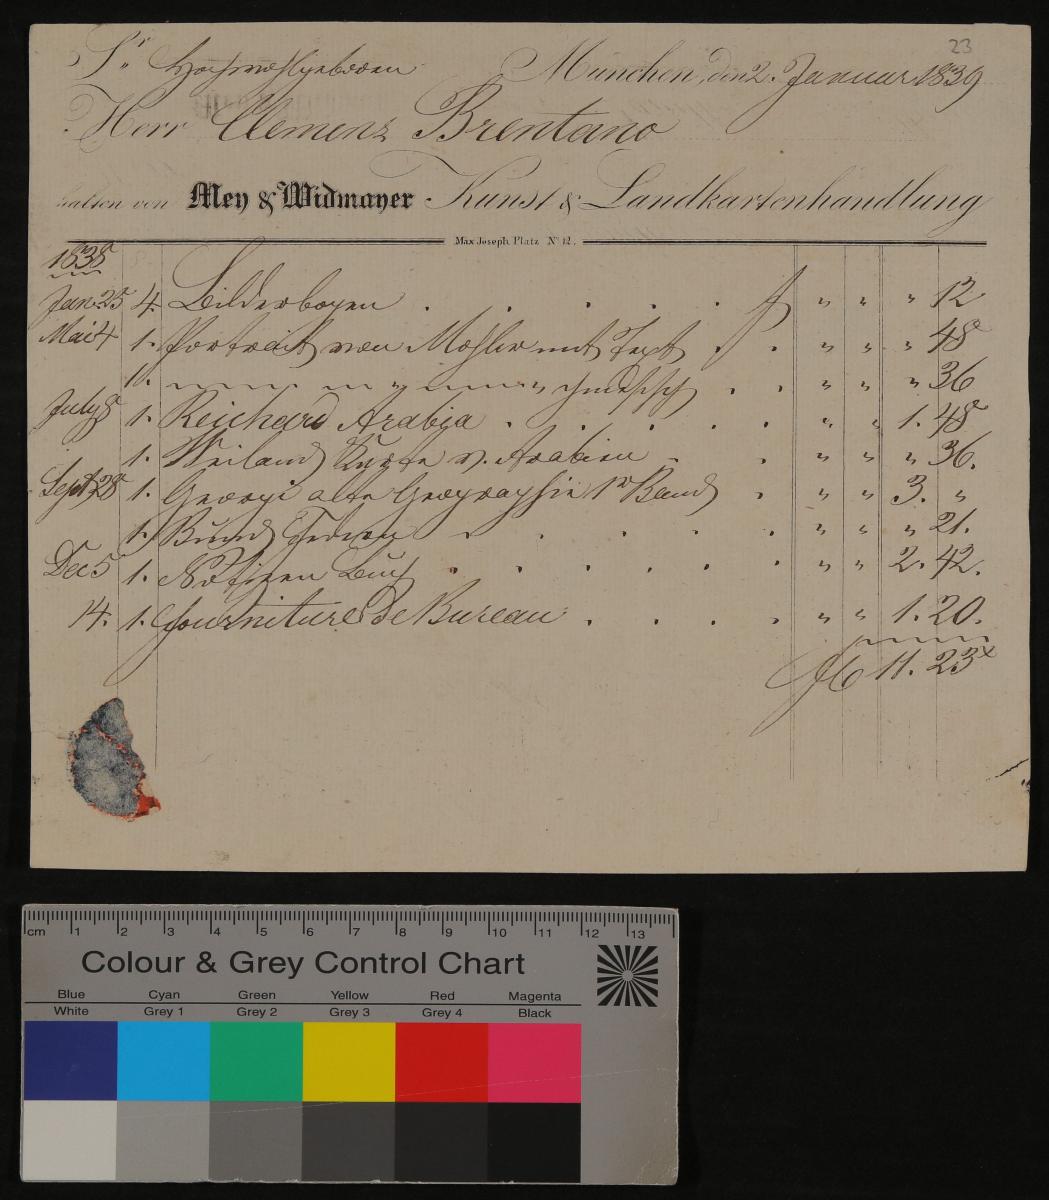 23
Sr. Hochwohlgeboren München, den 2. Januar 1839
Herr Clemens Brentano
halten von Mey & Widmayer Kunst & Landkartenhandlung
Max Joseph Platz No 12.
1838
Jan 25 4. Bilderbogen . . . . . f „ „ „ 12
Mai 4 1. Portrait von Möhler mit Text . . „ „ „ 48
1. „ „ . . „ „ „ 36
July 8 1. Reichard Arabia . . . . . „ „ 1. 48
1. Weiland Karte v. Arabien . . „ „ „ 36.
Sept 28 1. Georgi alte Geographie 1r Band . . „ „ 3. „
1. Bund Federn . . . . . „ „ „ 21.
Dec 5 1. Notizen Buch . . . . . „ „ 2. 42.
14. 1. fourniture de Bureau . . . . „ „ 1. 20.
f 11. 23x
cm 1 2 3 4 5 6 7 8 9 10 11 12 13
Colour & Grey Control Chart
Blue Cyan Green Yellow Red Magenta
White Grey 1 Grey 2 Grey 3 Grey 4 Black